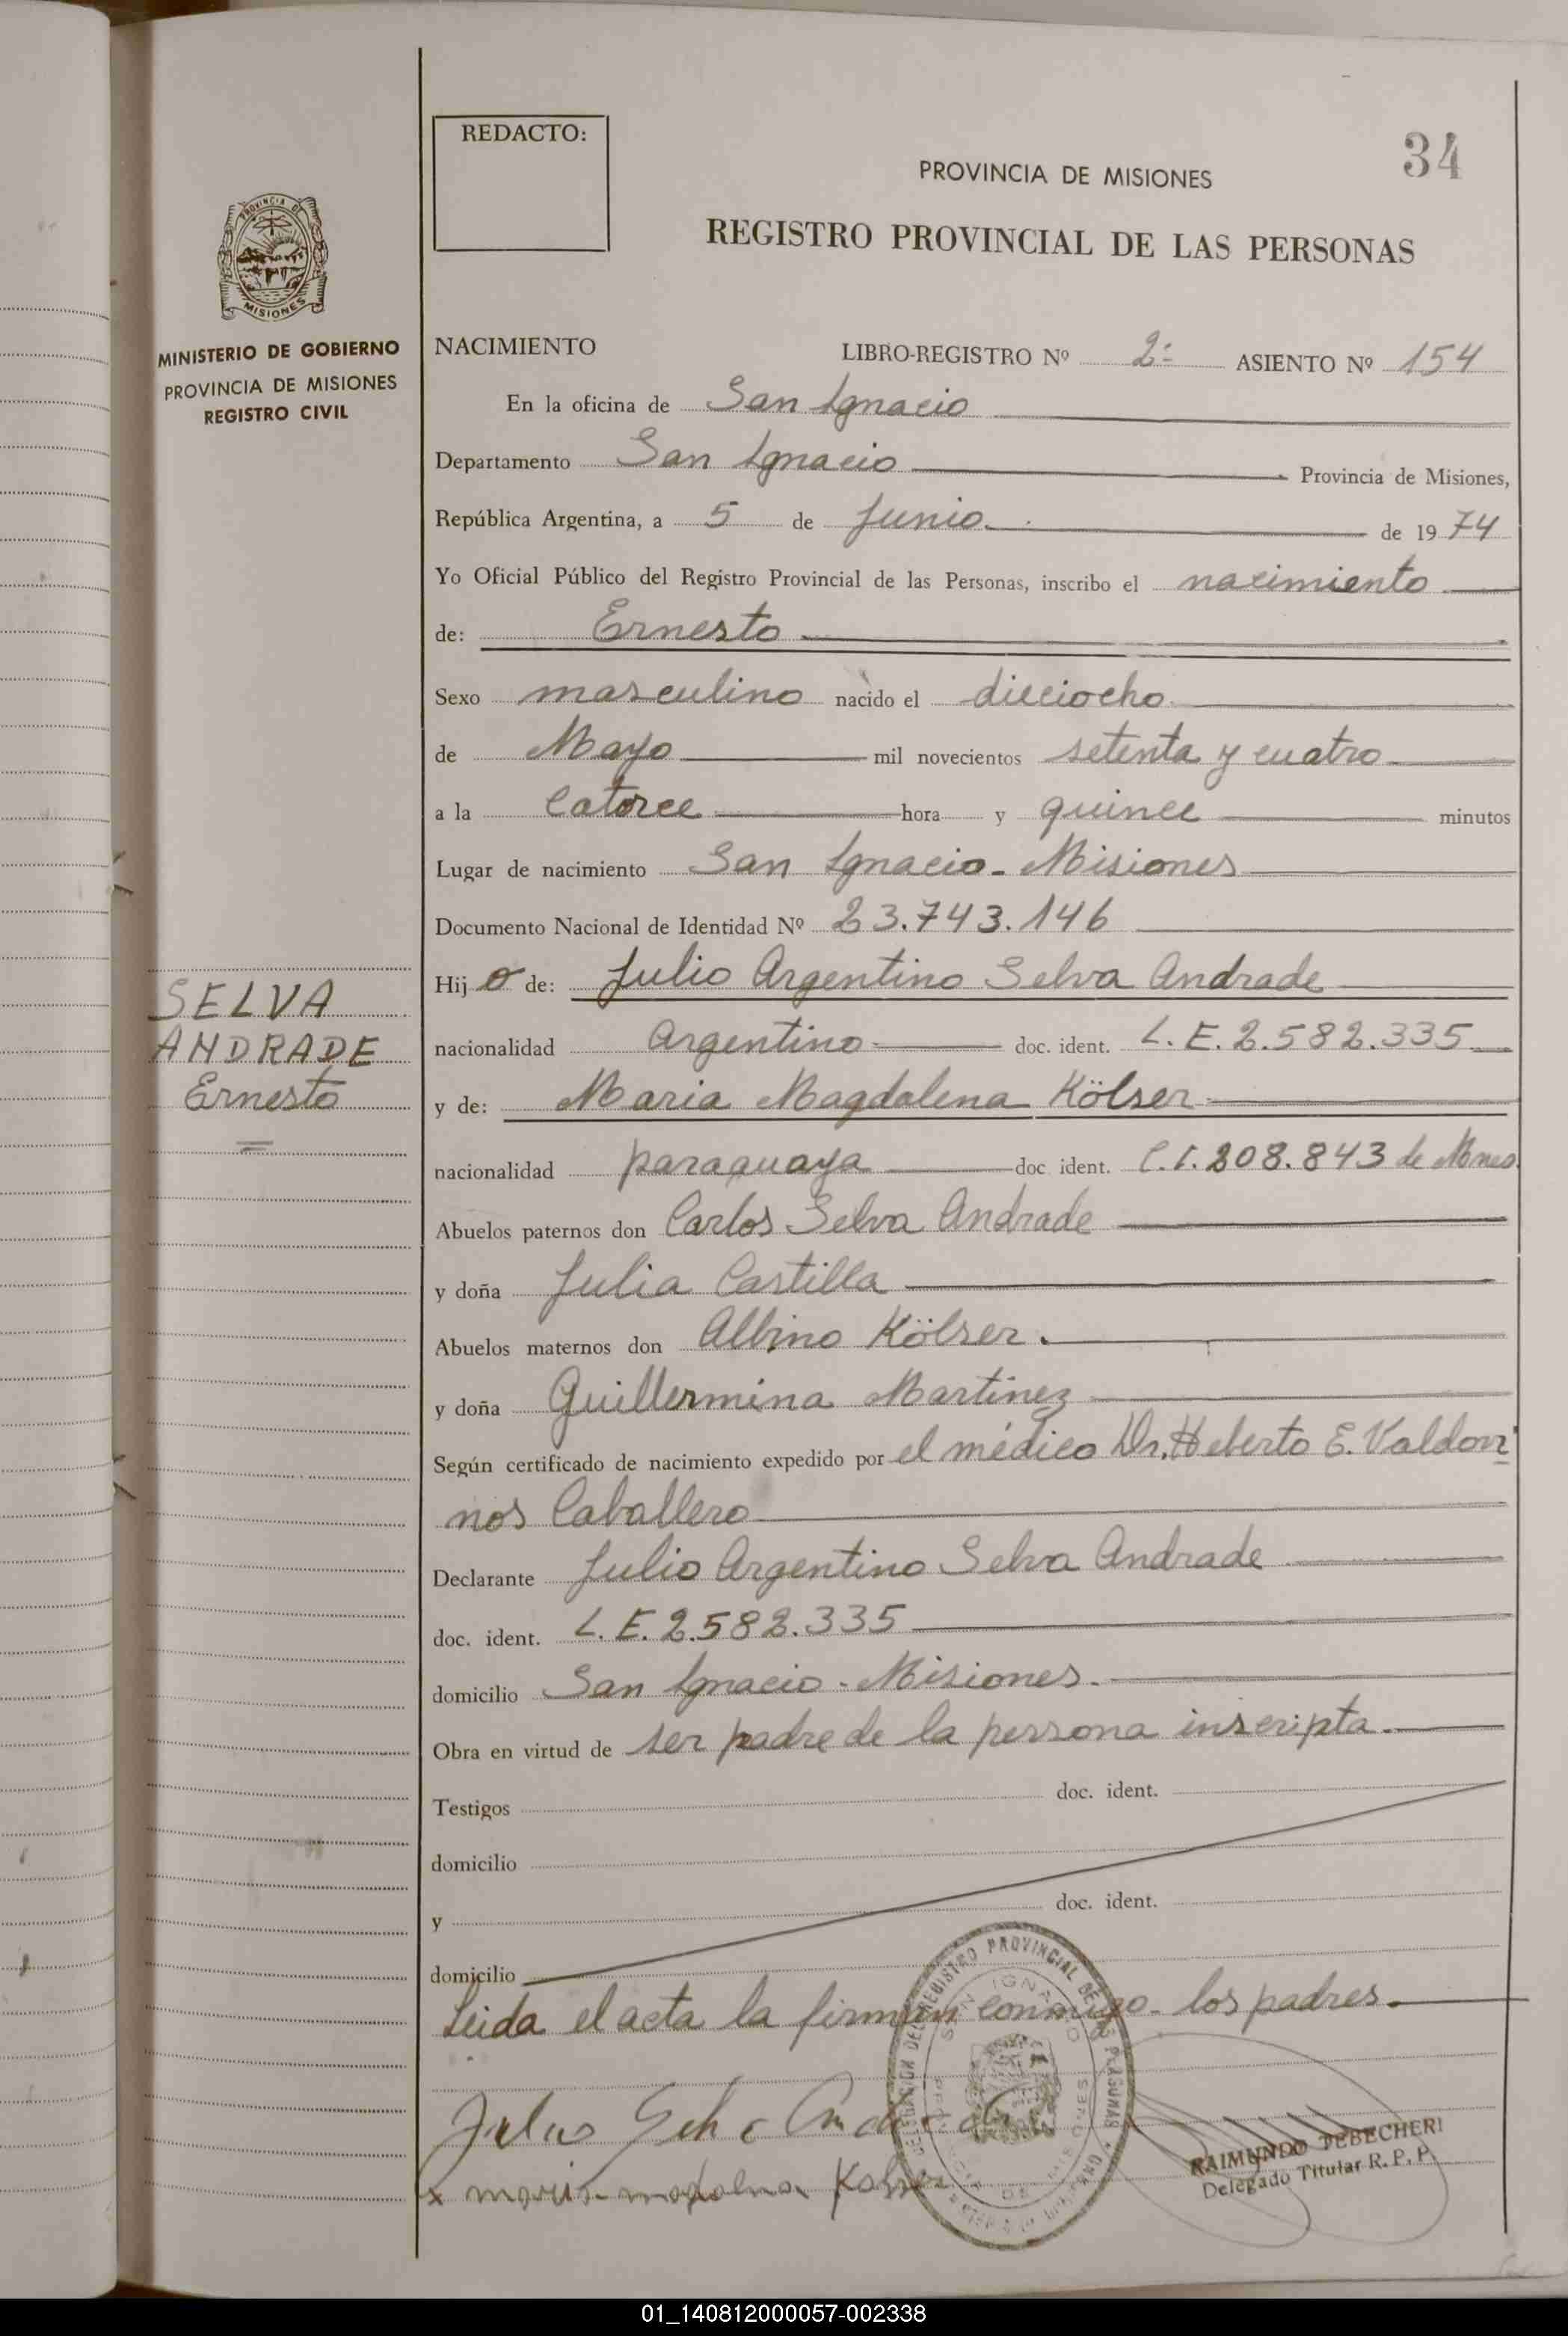 REDACTO:
34
PROVINCIA DE MISIONES
REGISTRO PROVINCIAL DE LAS PERSONAS
PROVINCIA DE
MISIONES
MINISTERIO DE GOBIERNO
PROVINCIA DE MISIONES
REGISTRO CIVIL
NACIMIENTO LIBRO-REGISTRO Nº 2º ASIENTO Nº 154
En la oficina de San Ignacio
Departamento San Ignacio Provincia de Misiones,
República Argentina, a 5 de Junio. de 1974
Yo Oficial Público del Registro Provincial de las Personas, inscribo el nacimiento
de: Ernesto
Sexo masculino nacido el dieciocho
de Mayo mil novecientos setenta y cuatro
a la Catorce hora y quince minutos
Lugar de nacimiento San Ignacio - Misiones
Documento Nacional de Identidad Nº 23.743.146
Hijo de: Julio Argentino Selva Andrade
SELVA
ANDRADE
Ernesto
nacionalidad Argentino doc. ident. L.E. 2.582.335
y de: Maria Magdalena Kölser
nacionalidad paraguaya doc ident. C.I. 208.843 de Mnes
Abuelos paternos don Carlos Selva Andrade
y doña Julia Castilla
Abuelos maternos don Albino Kölser.
y doña Guillermina Martinez
Según certificado de nacimiento expedido por el médico Dr. Heberto E. Valdovi
nos Caballero
Declarante Julio Argentino Selva Andrade
doc. ident. L.E. 2.582.335
domicilio San Ignacio - Misiones.
Obra en virtud de ser padre de la persona inscripta.
Testigos doc. ident.
domicilio
y doc. ident.
domicilio
Leida el acta la firman conmigo - los padres.
DELEGACION DEL REGISTRO PROVINCIAL DE
SAN IGNACIO
MISIONES
Julio Selva Andrade
x maria magdalena Kolser
RAIMUNDO TEBECHERI
Delegado Titular R. P. P.
01_140812000057-002338